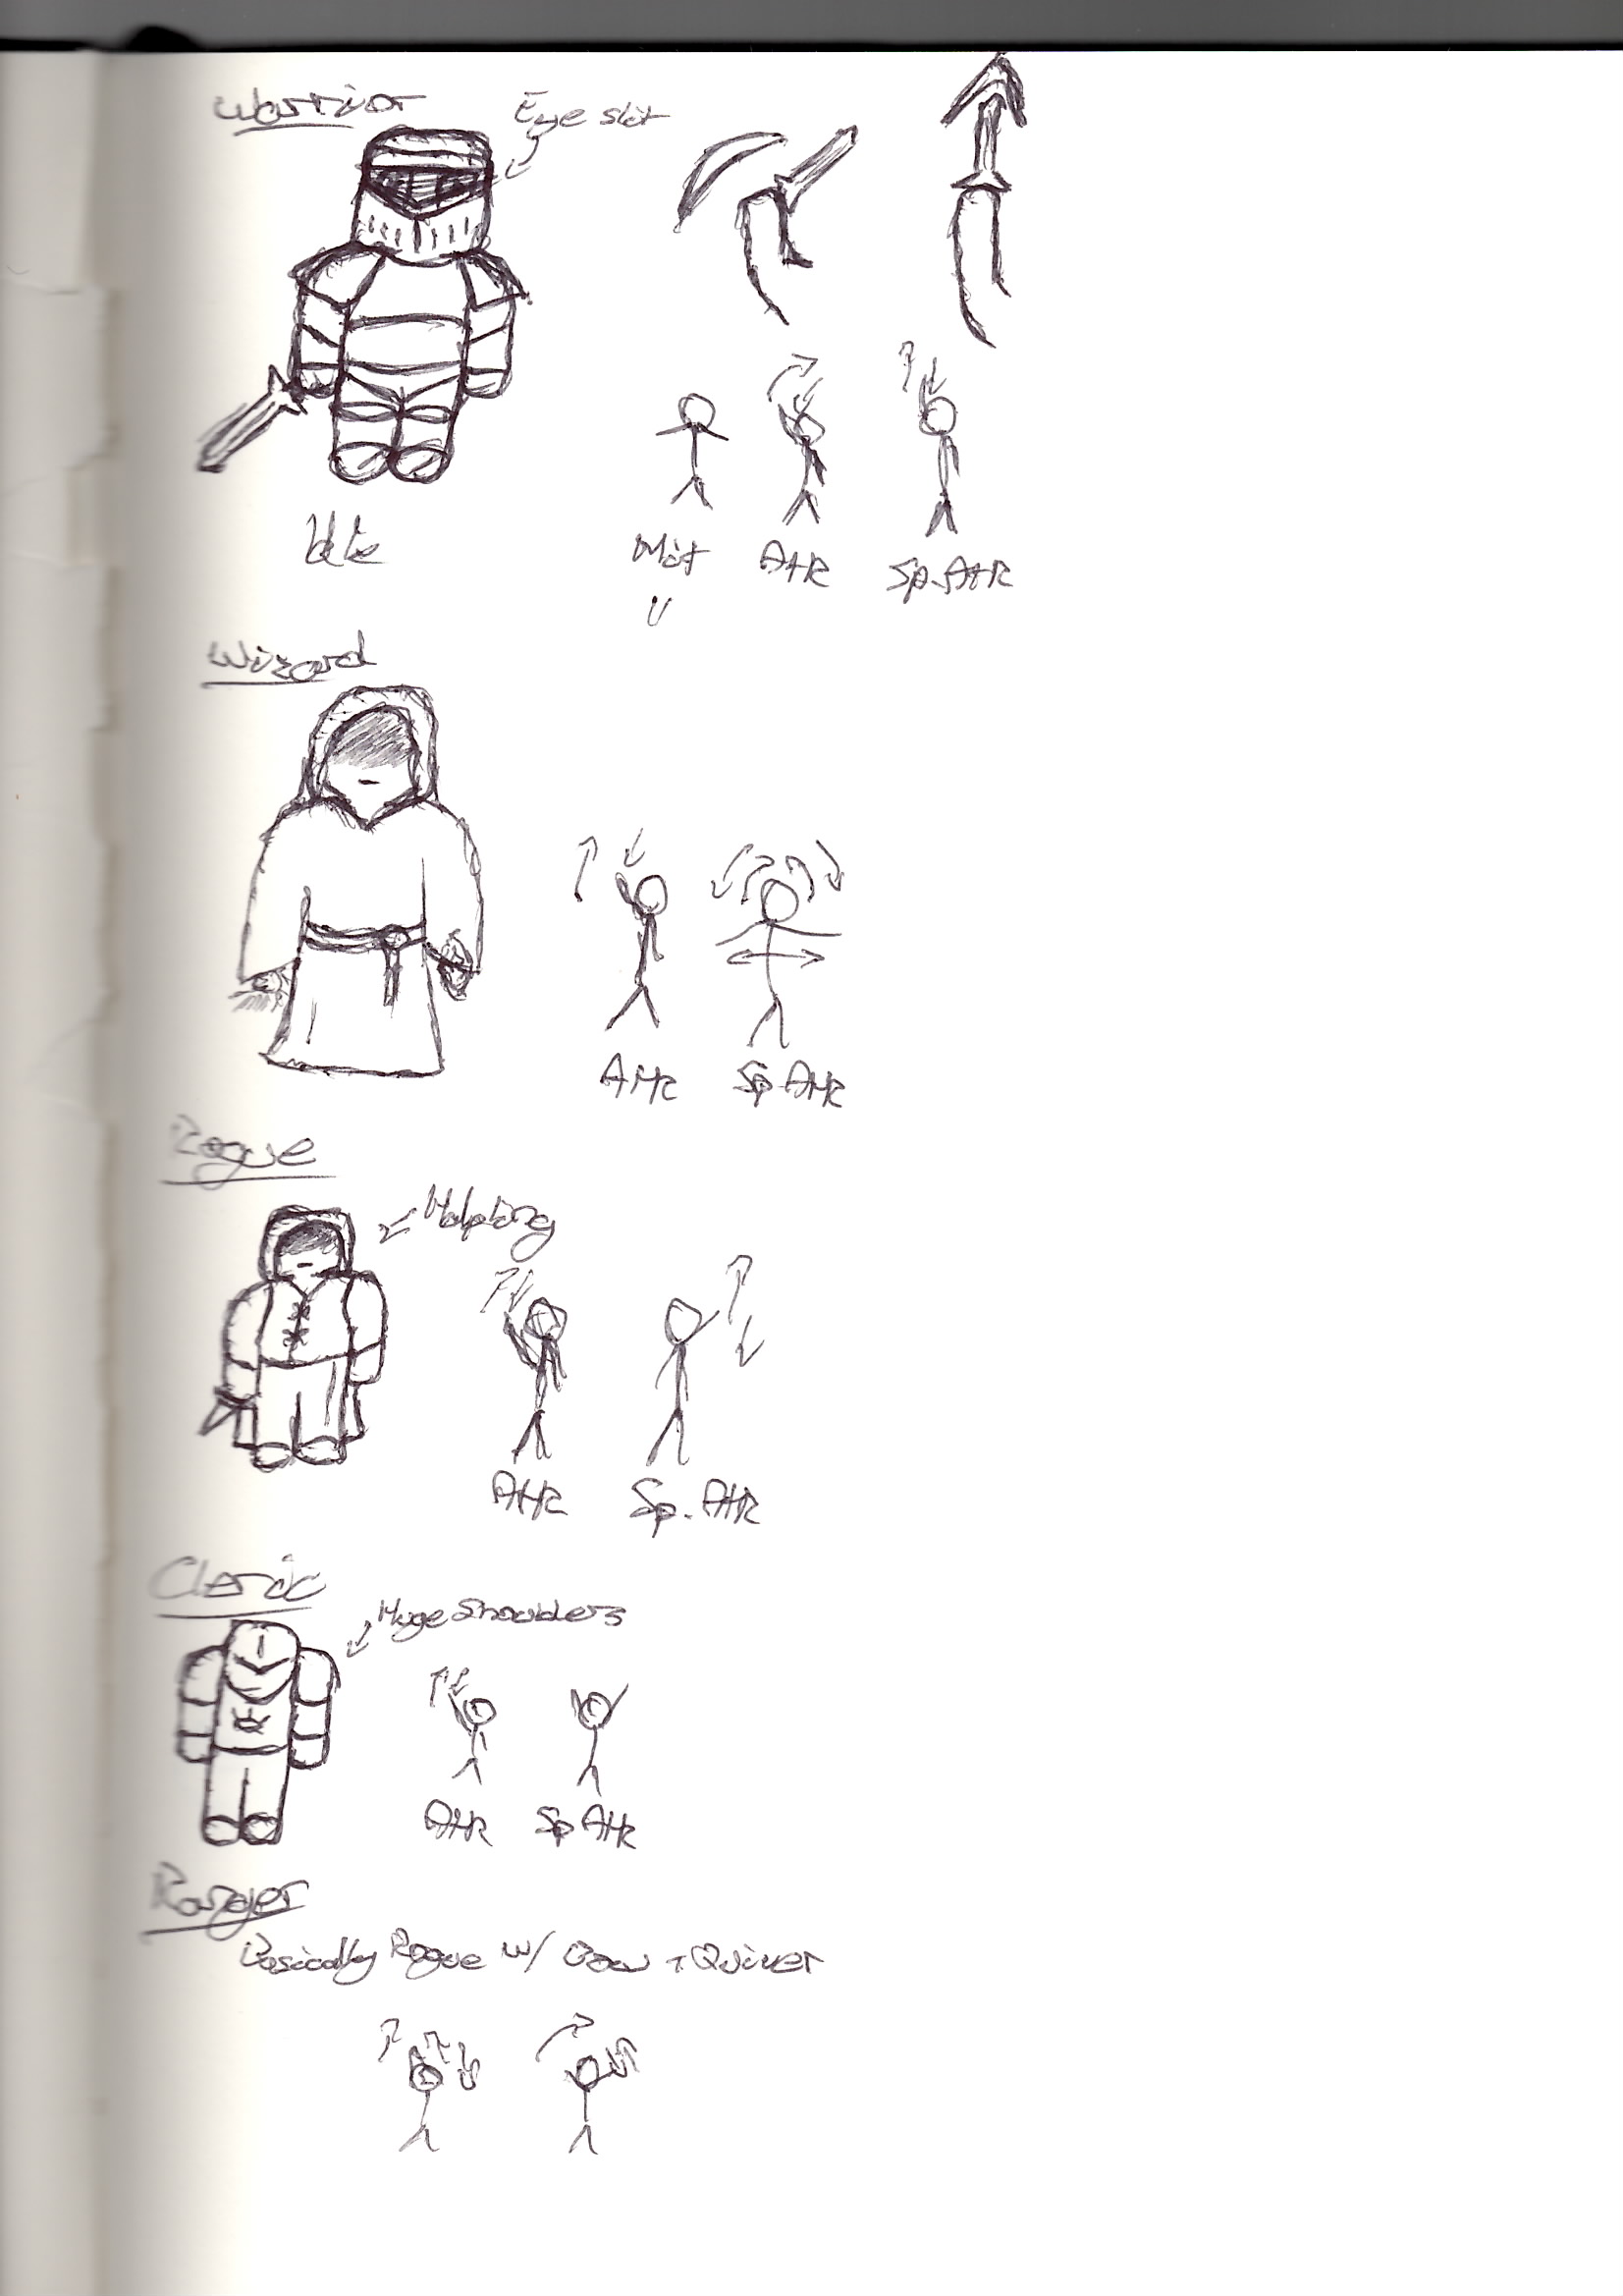 Warrior
Eye slit
Idle
Atk
Sp. Atk
Wizard
Atk
Sp Atk
Rogue
Halfling
Atk
Sp. Atk
Cleric
Huge Shoulders
Atk
Sp Atk
Ranger
Basically Rogue w/ Bow + Quiver